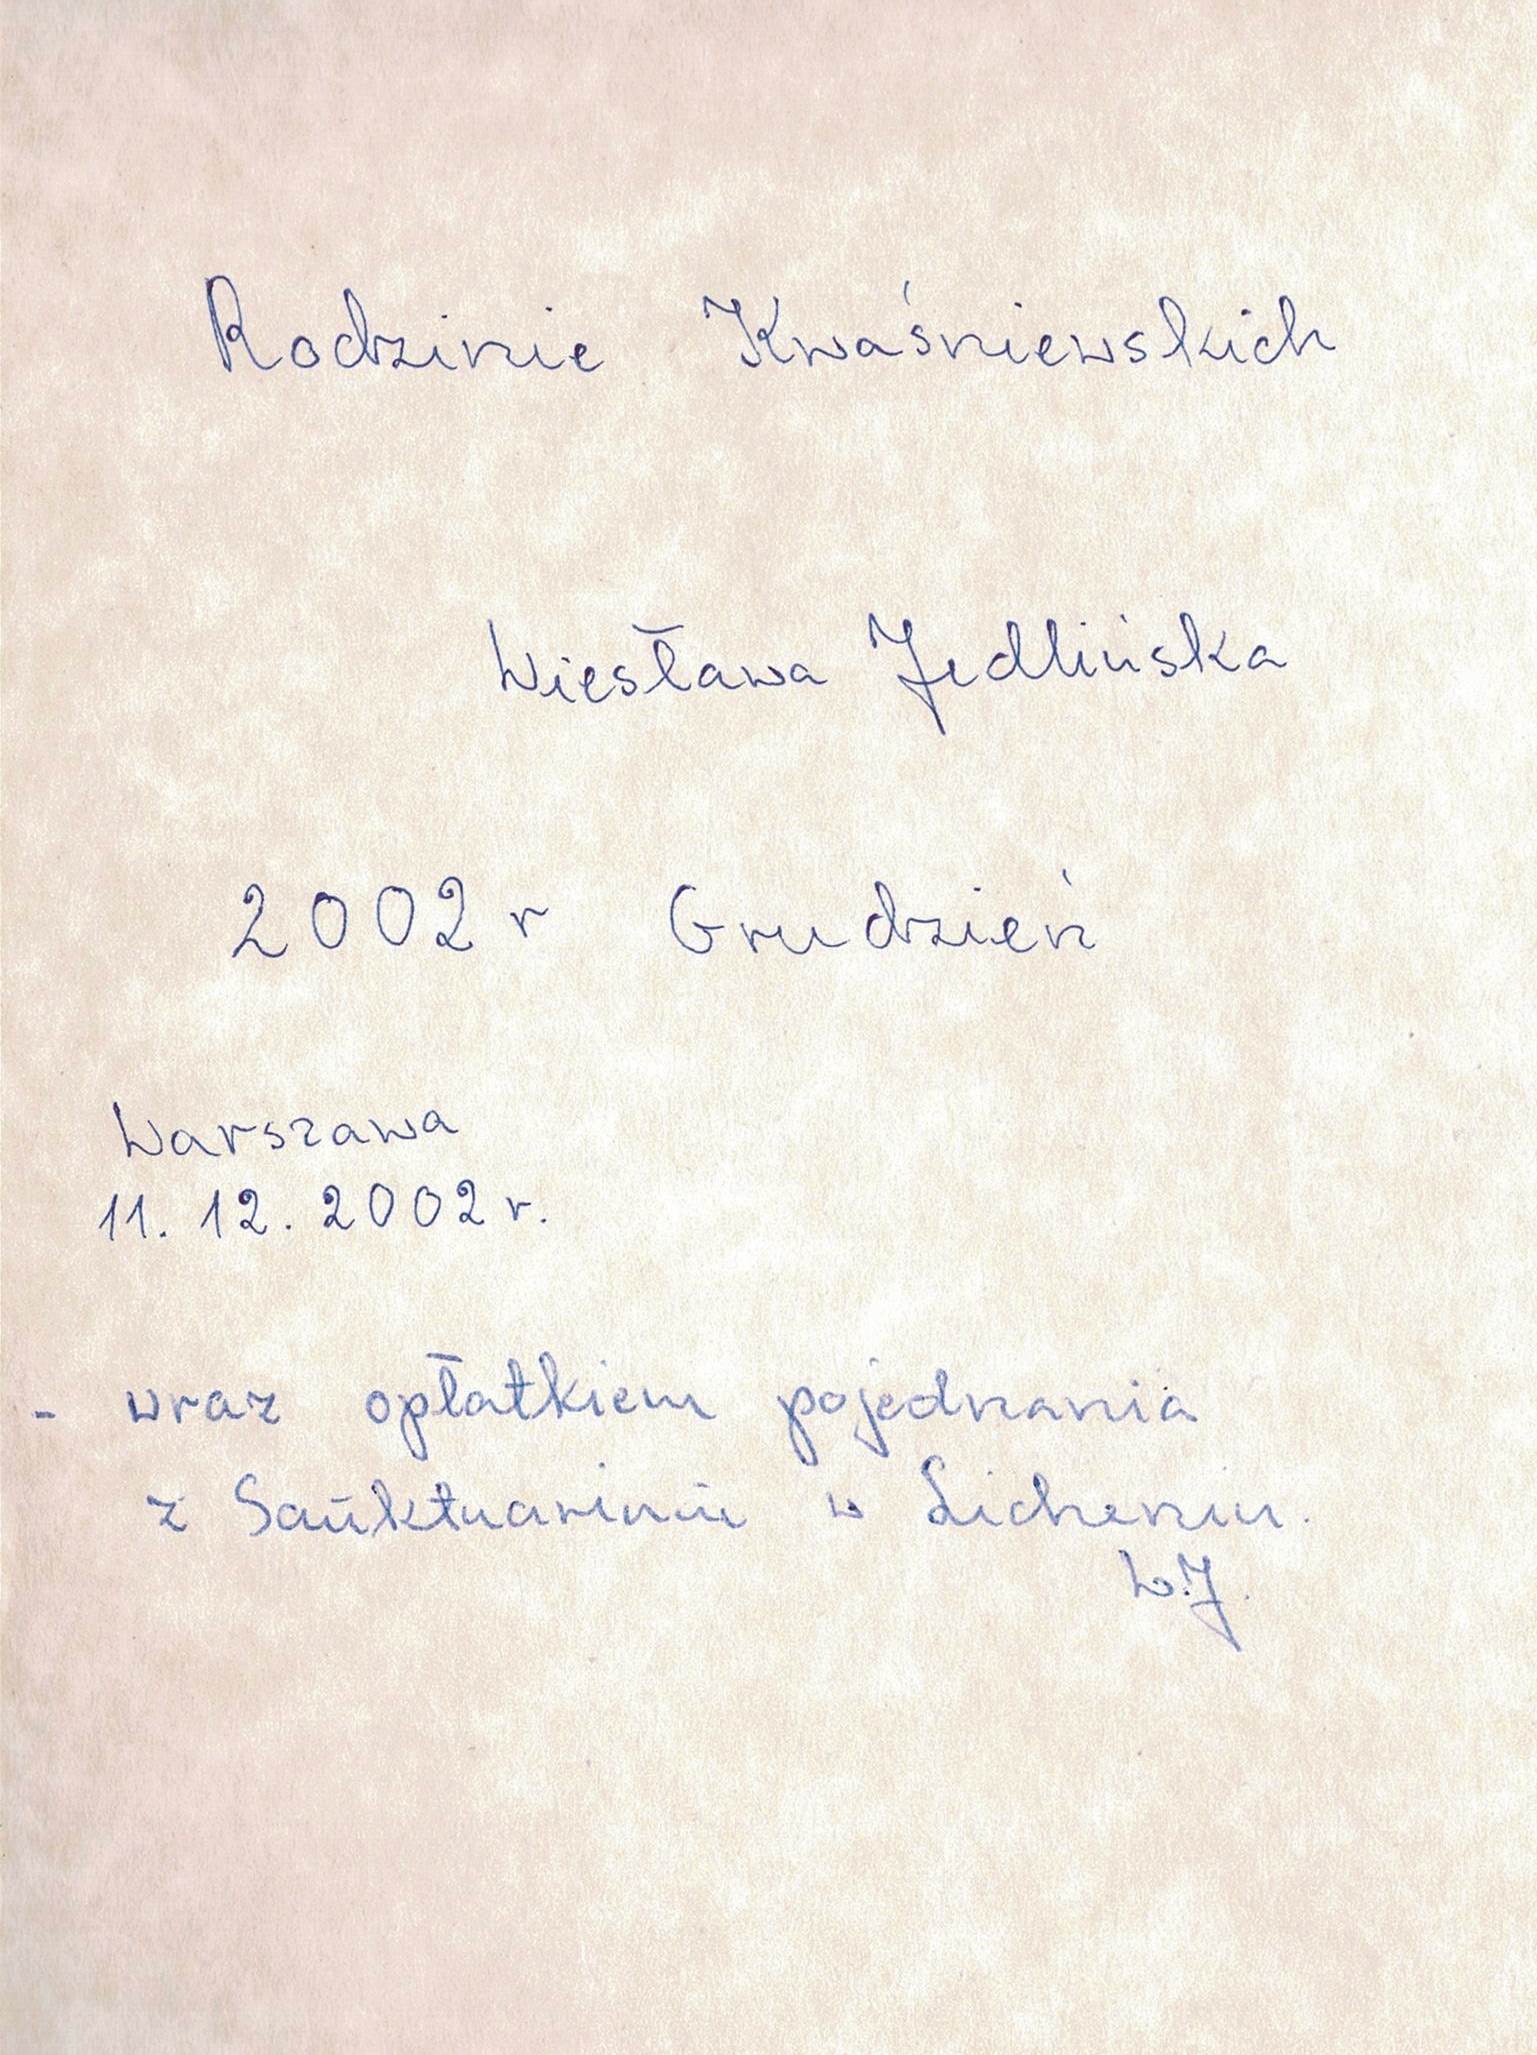 Rodzinie Kwaśniewskich
Wiesława Jedlińska
2002 r Grudzień
Warszawa
11. 12. 2002 r.
- wraz opłatkiem pojednania
z Sanktuarium w Licheniu.
W.J.